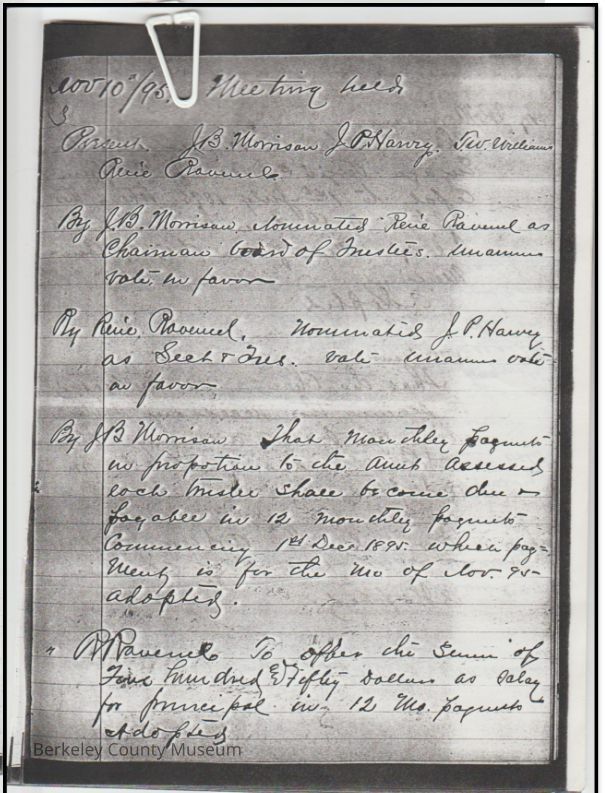 Nov 10th/95. Meeting held
Present J.B. Morrison J.P. Harvey. Williams
René Ravenel
By J.B. Morrison. Nominated René Ravenel as
Chairman board of Trustees. unanims
vote in favor
By René Ravenel. Nominated J.P. Harvey
as Sect & Tres. vote unanims vote
in favor
By J B Morrison That monthly paymts
in propotion to the amt assessed
each trustee shall become due &
payable in 12 monthly paymts
Commencing 1st Dec 1895 when pay=
ment is for the Mo of Nov. 95
adopted.
" R Ravenel To offer the Sum of
hundred & Fifty Dollars as salary
for principal in 12 Mo. paymts
Adopted
Berkeley County Museum